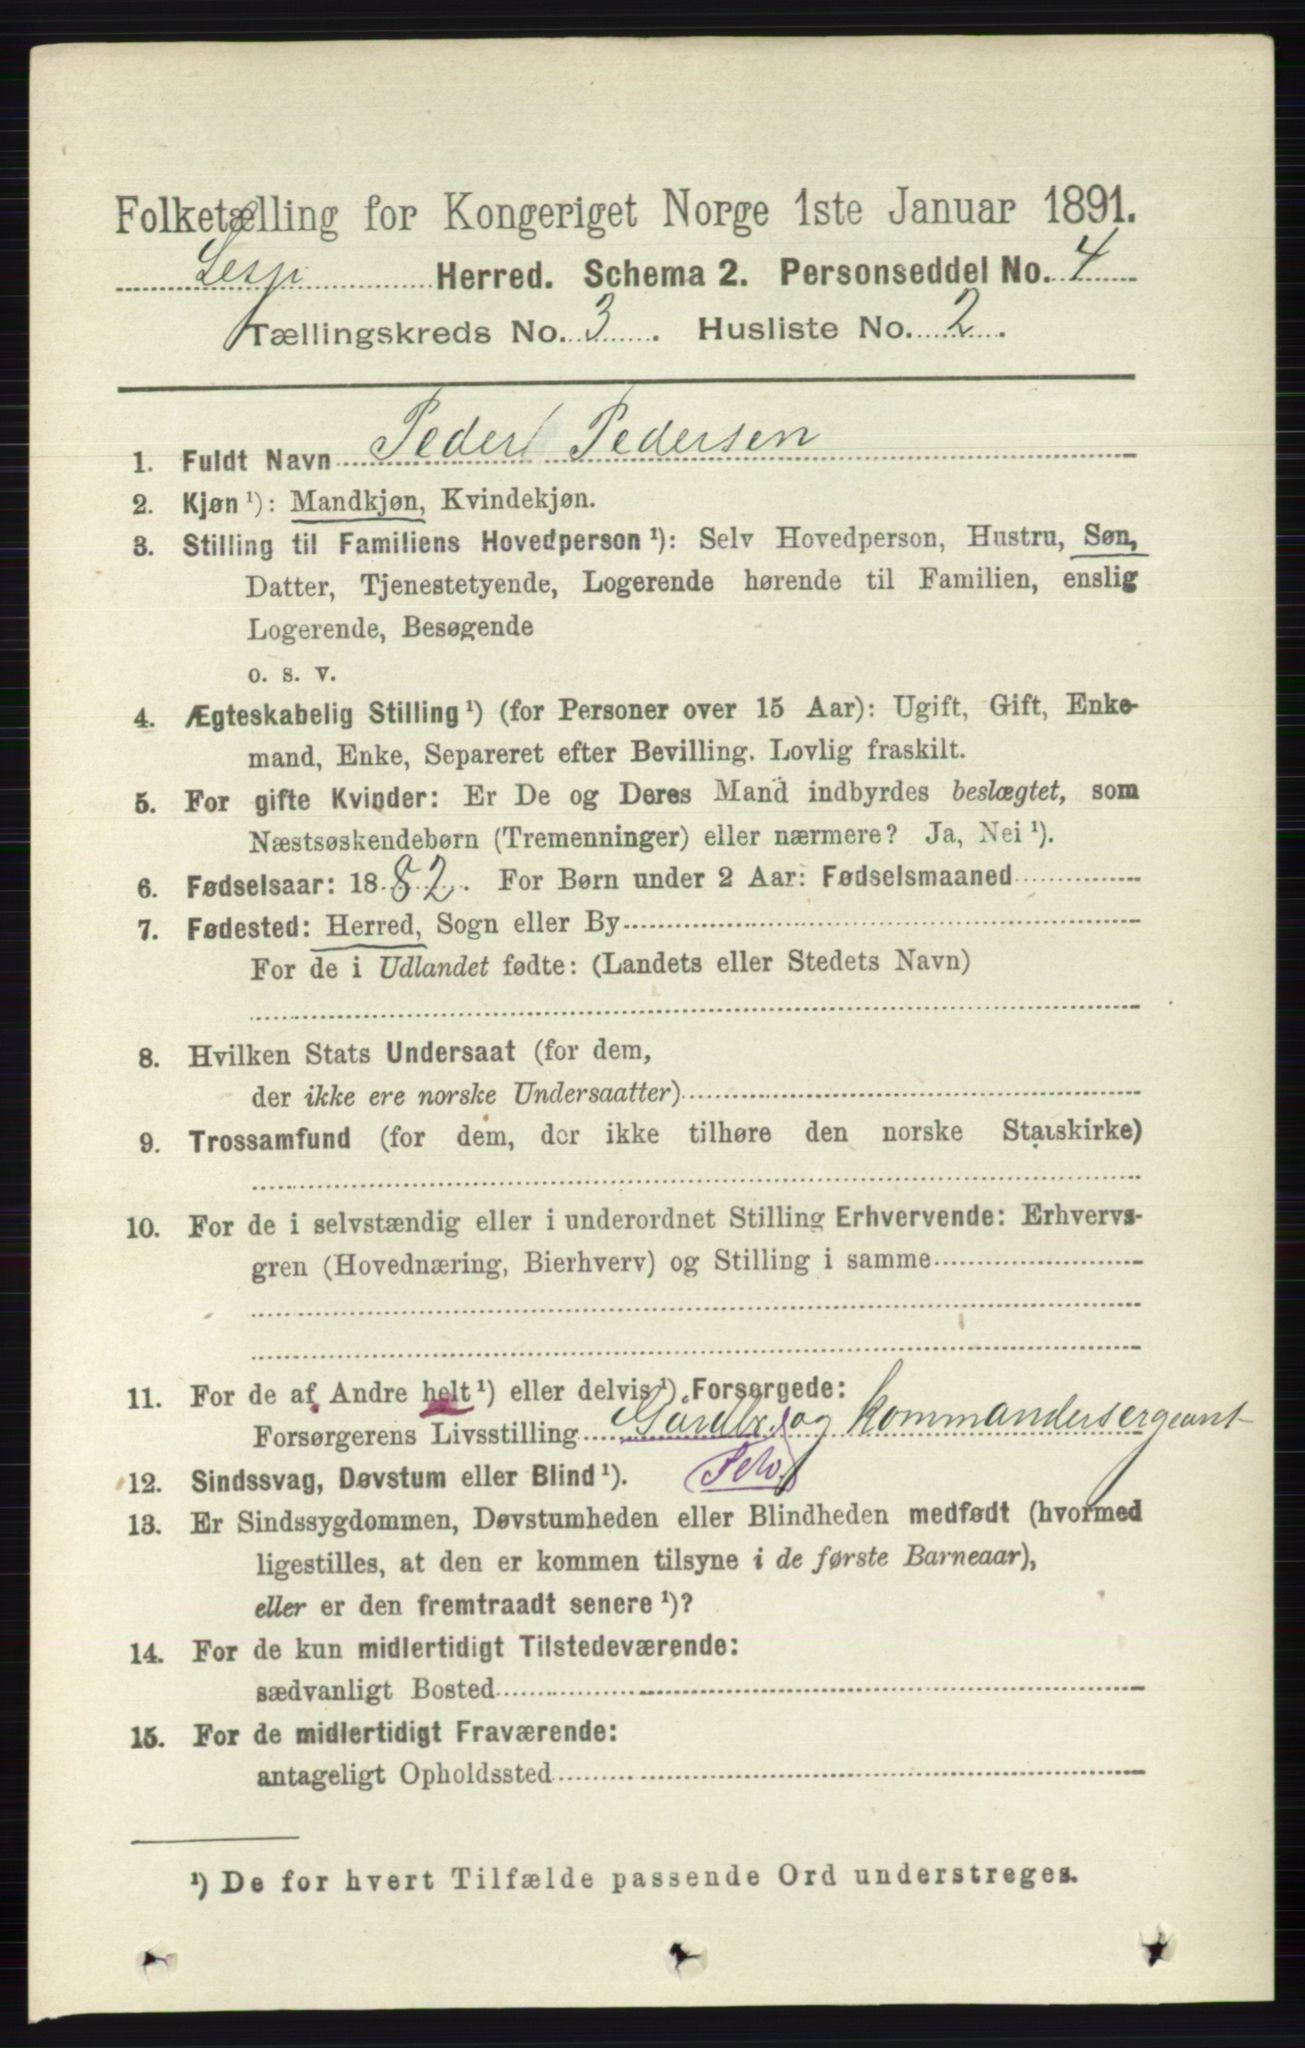 Folketælling for Kongeriget Norge 1ste Januar 1891.
Lesje Herred. Schema 2. Personseddel No. 4
Tællingskreds No. 3. Husliste No. 2.
1. Fuldt Navn Peder Pedersen
2. Kjøn ¹): Mandkjøn, Kvindekjøn.
3. Stilling til Familiens Hovedperson ¹): Selv Hovedperson, Hustru, Søn,
Datter, Tjenestetyende, Logerende hørende til Familien, enslig
Logerende, Besøgende
o. s. v.
4. Ægteskabelig Stilling ¹) (for Personer over 15 Aar): Ugift, Gift, Enke-
mand, Enke, Separeret efter Bevilling. Lovlig fraskilt.
5. For gifte Kvinder: Er De og Deres Mand indbyrdes beslægtet, som
Næstsøskendebørn (Tremenninger) eller nærmere? Ja, Nei ¹).
6. Fødselsaar: 1882. For Børn under 2 Aar: Fødselsmaaned
7. Fødested: Herred, Sogn eller By
For de i Udlandet fødte: (Landets eller Stedets Navn)
8. Hvilken Stats Undersaat (for dem,
der ikke ere norske Undersaatter)
9. Trossamfund (for dem, der ikke tilhøre den norske Statskirke)
10. For de i selvstændig eller i underordnet Stilling Erhvervende: Erhvervs-
gren (Hovednæring, Bierhverv) og Stilling i samme
11. For de af Andre helt ¹) eller delvis ¹) Forsørgede:
Forsørgerens Livsstilling Gårdbr. og Kommandersergeant
12. Sindssvag, Døvstum eller Blind ¹). Selv
13. Er Sindssygdommen, Døvstumheden eller Blindheden medfødt (hvormed
ligestilles, at den er kommen tilsyne i de første Barneaar),
eller er den fremtraadt senere ¹)?
14. For de kun midlertidigt Tilstedeværende:
sædvanligt Bosted
15. For de midlertidigt Fraværende:
antageligt Opholdssted
¹) De for hvert Tilfælde passende Ord understreges.